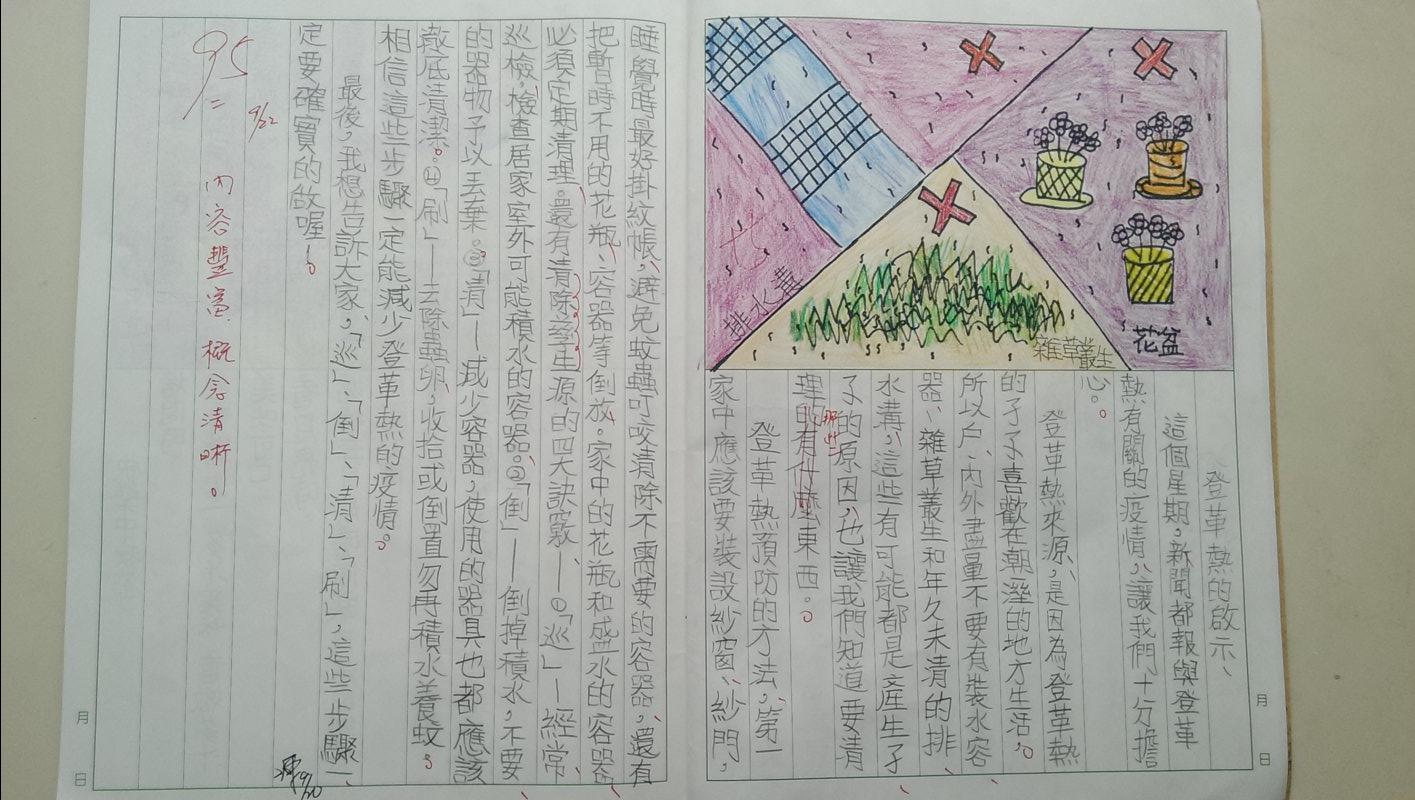 排水溝
雜草叢生
花盆
登革熱的啟示
這個星期，新聞都報與登革
熱有關的疫情，讓我們十分擔
心。
登革熱來源，是因為登革熱
的孑孑喜歡在潮溼的地方生活，
所以戶、內外盡量不要有裝水容
器、雜草叢生和年久未清的排
水溝，這些有可能都是產生孑
子的原因，也讓我們知道要清
理的有什麼東西。
那些
登革熱預防的方法，第一
家中應該要裝設紗窗、紗門，
睡覺時最好掛紋帳，避免蚊蟲叮咬清除不需要的容器，還有
把暫時不用的花瓶、容器等倒放。家中的花瓶和盛水的容器
必須定期清理。還有清除孳生源的四大訣竅—①「巡」—經常
巡檢，檢查居家室外可能積水的容器。②「倒」—倒掉積水，不要
的器物予以丟棄。③「清」—減少容器，使用的器具也都應該
澈底清潔。④「刷」—去除蟲卵，收拾或倒置勿再積水養蚊。
相信這些步驟一定能減少登革熱的疫情。
最後，我想告訴大家，「巡」、「倒」、「清」、「刷」，這些步驟一
定要確實的做喔！
95
9/22
內容豐富，概念清晰。
9/20
月
日
月
日